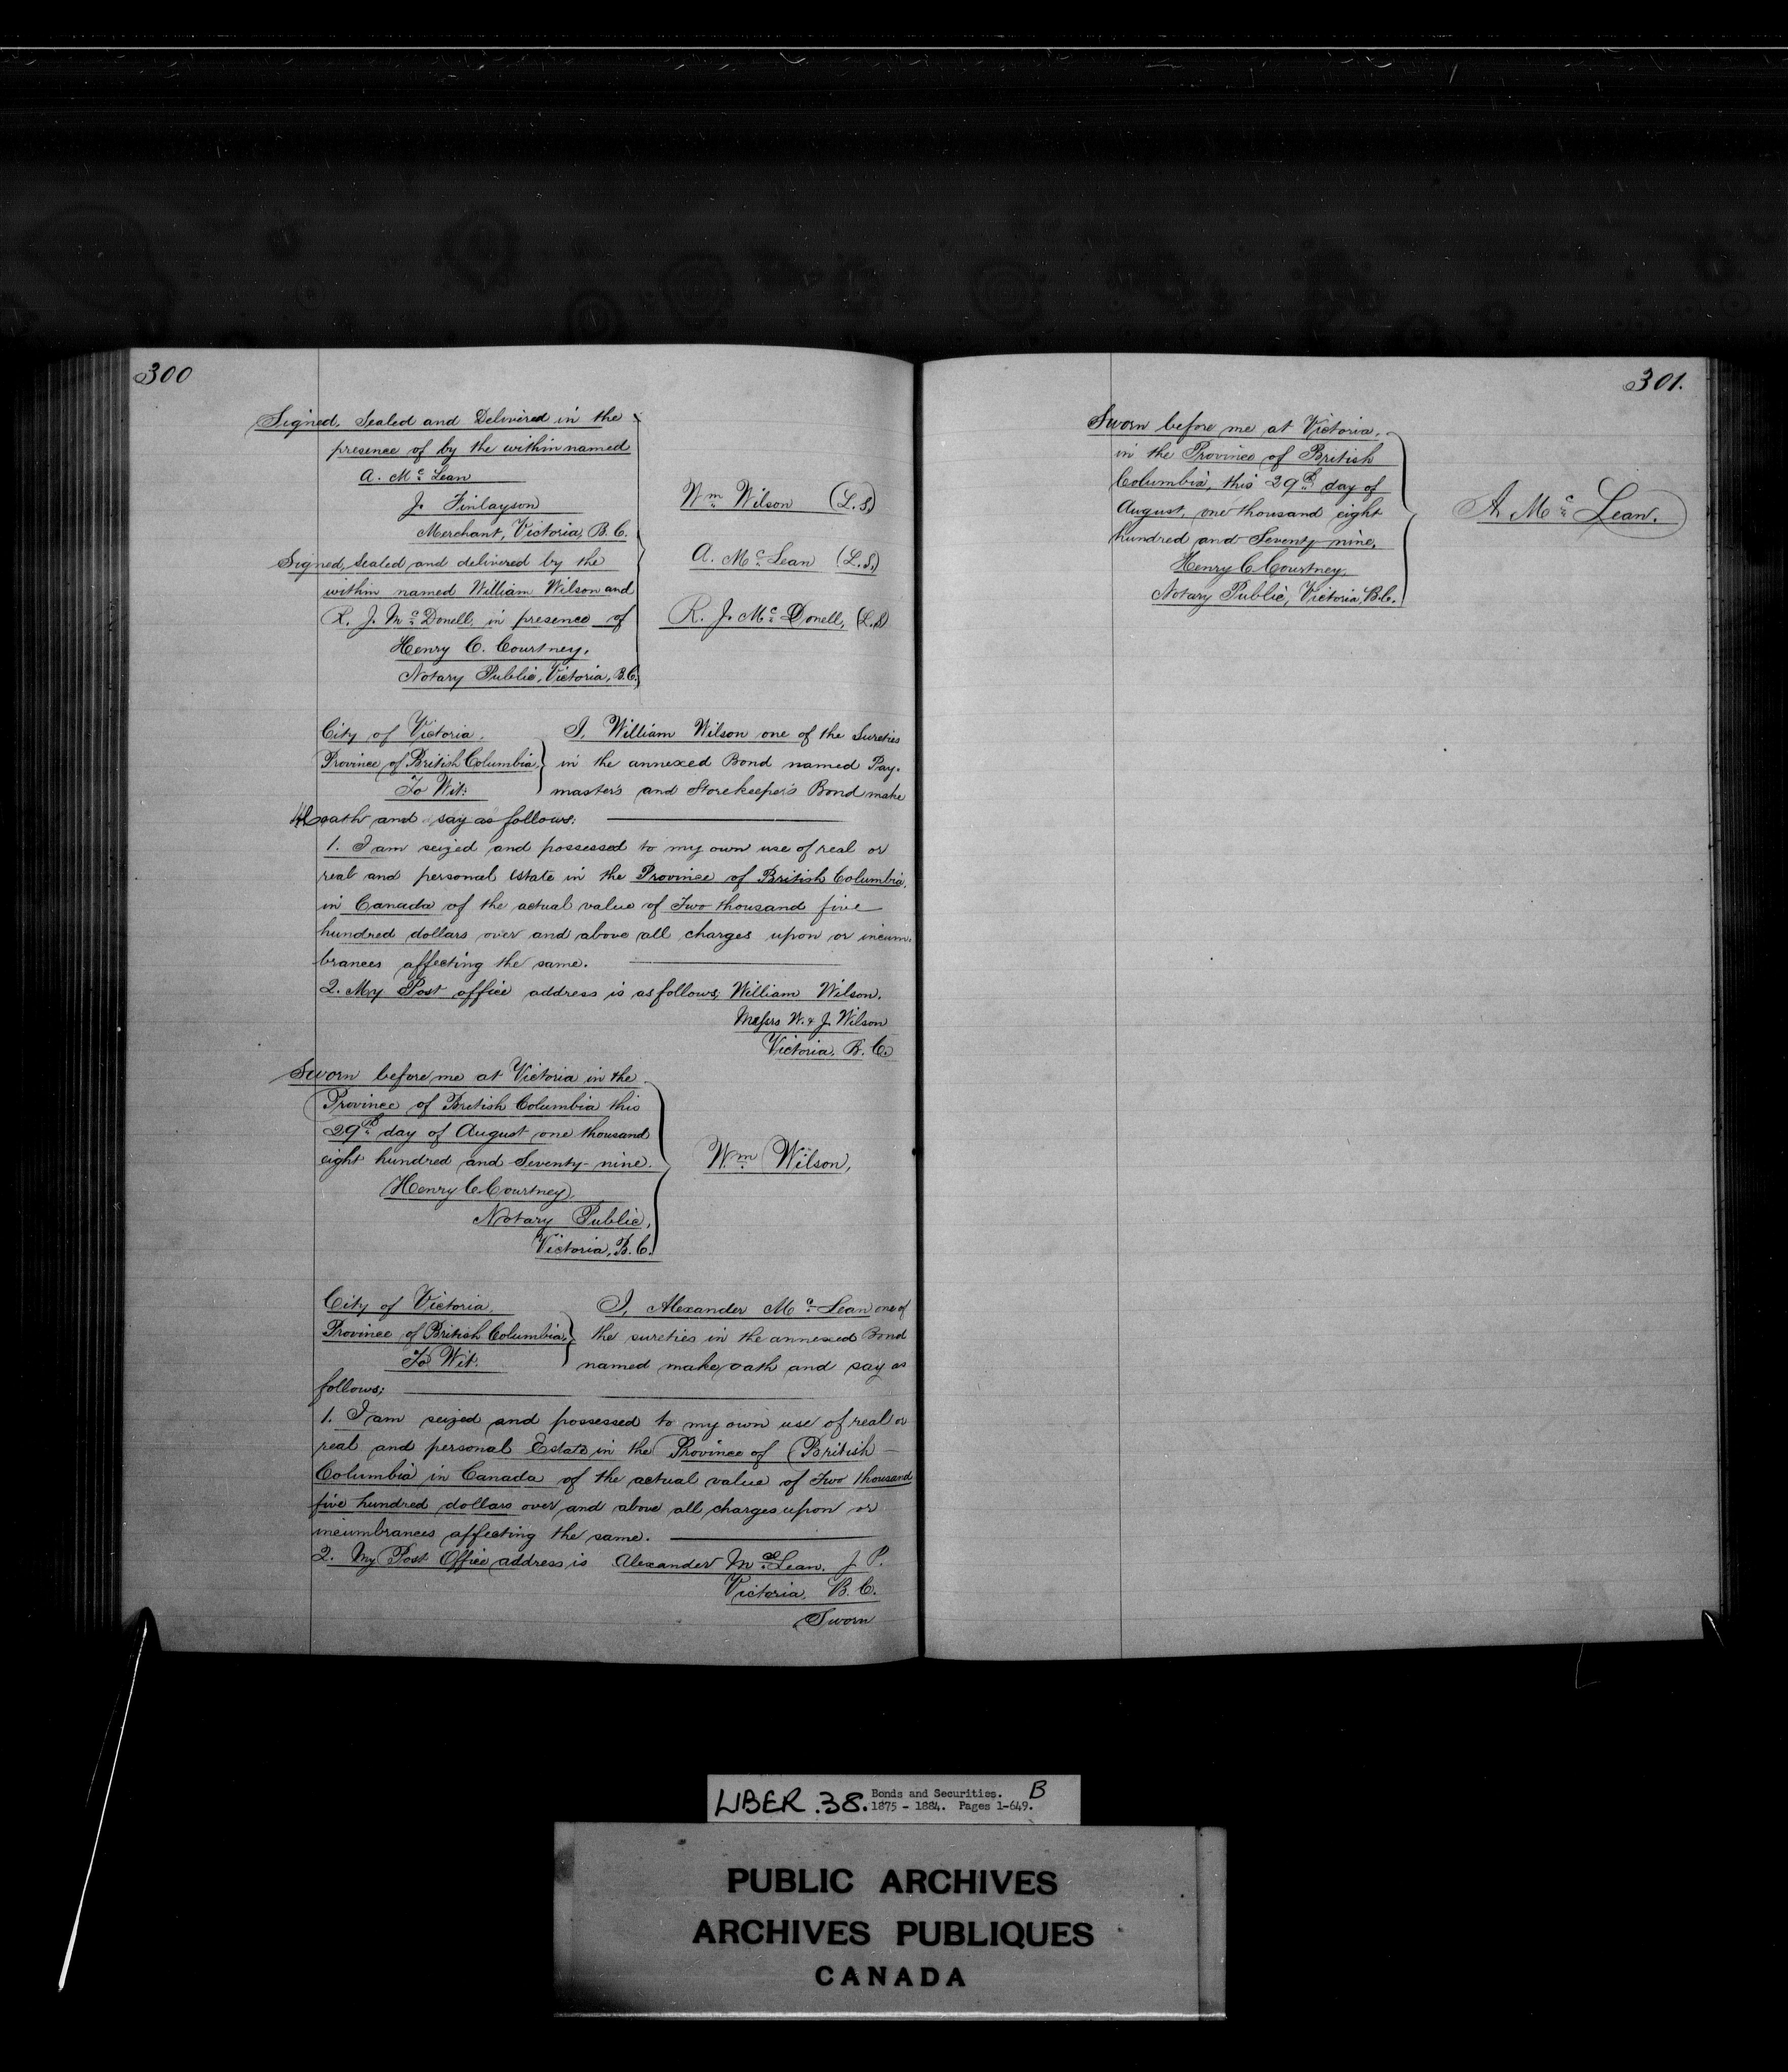 300
Signed, Sealed and Delivered in the
presence of by the within named
A. Mc Lean
J. Finlayson
Merchant, Victoria, B.C.
Signed, sealed and delivered by the
within named William Wilson and
R. J. Mc Donell, in presence of
Henry C. Courtney,
Notary Public, Victoria, B.C.
Wm Wilson (L.S)
A. Mc Lean (L.S.)
R. J. Mc Donell, (L.S)
City of Victoria,
Province of British Columbia,
To Wit:
I, William Wilson one of the Sureties
in the annexed Bond named Pay-
master's and Storekeeper's Bond make
oath and say as follows:
1. I am seized and possessed to my own use of real or
real and personal Estate in the Province of British Columbia,
in Canada of the actual value of Two thousand five
hundred dollars over and above all charges upon or incum-
brances affecting the same.
2. My Post office address is as follows, William Wilson.
Messrs W. & J. Wilson
Victoria, B.C.
Sworn before me at Victoria in the
Province of British Columbia this
29th day of August one thousand
eight hundred and Seventy-nine.
Henry C. Courtney,
Notary Public,
Victoria, B.C.
Wm Wilson,
City of Victoria,
Province of British Columbia,
To Wit.
I, Alexander Mc Lean one of
the sureties in the annexed Bond
named make oath and say as
follows;
1. I am seized and possessed to my own use of real or
real and personal Estate in the Province of British
Columbia in Canada of the actual value of Two thousand
five hundred dollars over and above all charges upon or
incumbrances affecting the same.
2. My Post Office address is Alexander Mc Lean, J P.
Victoria, B.C.
Sworn
301.
Sworn before me at Victoria,
in the Province of British
Columbia, this 29th day of
August, one thousand eight
hundred and Seventy nine,
Henry C Courtney,
Notary Public, Victoria, B.C.
A. Mc Lean.
LIBER .38. Bonds and Securities. B
1875 - 1884. Pages 1-649.
PUBLIC ARCHIVES
ARCHIVES PUBLIQUES
CANADA